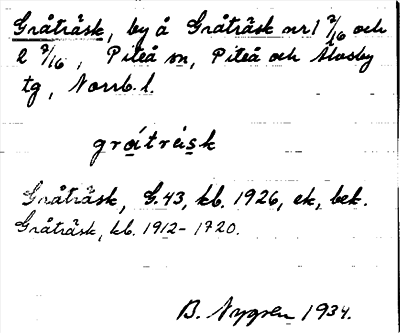 Gråträsk, by å Gråträsk nr 1 7/16 och
2 7/16, Piteå sn, Piteå och Älvsby
tg, Norrb. l.
gråträisk
Gråträsk, G.43, kb. 1926, ek, bek.
Gråträsk, kb. 1912-1920.
B. Nygren 1934.